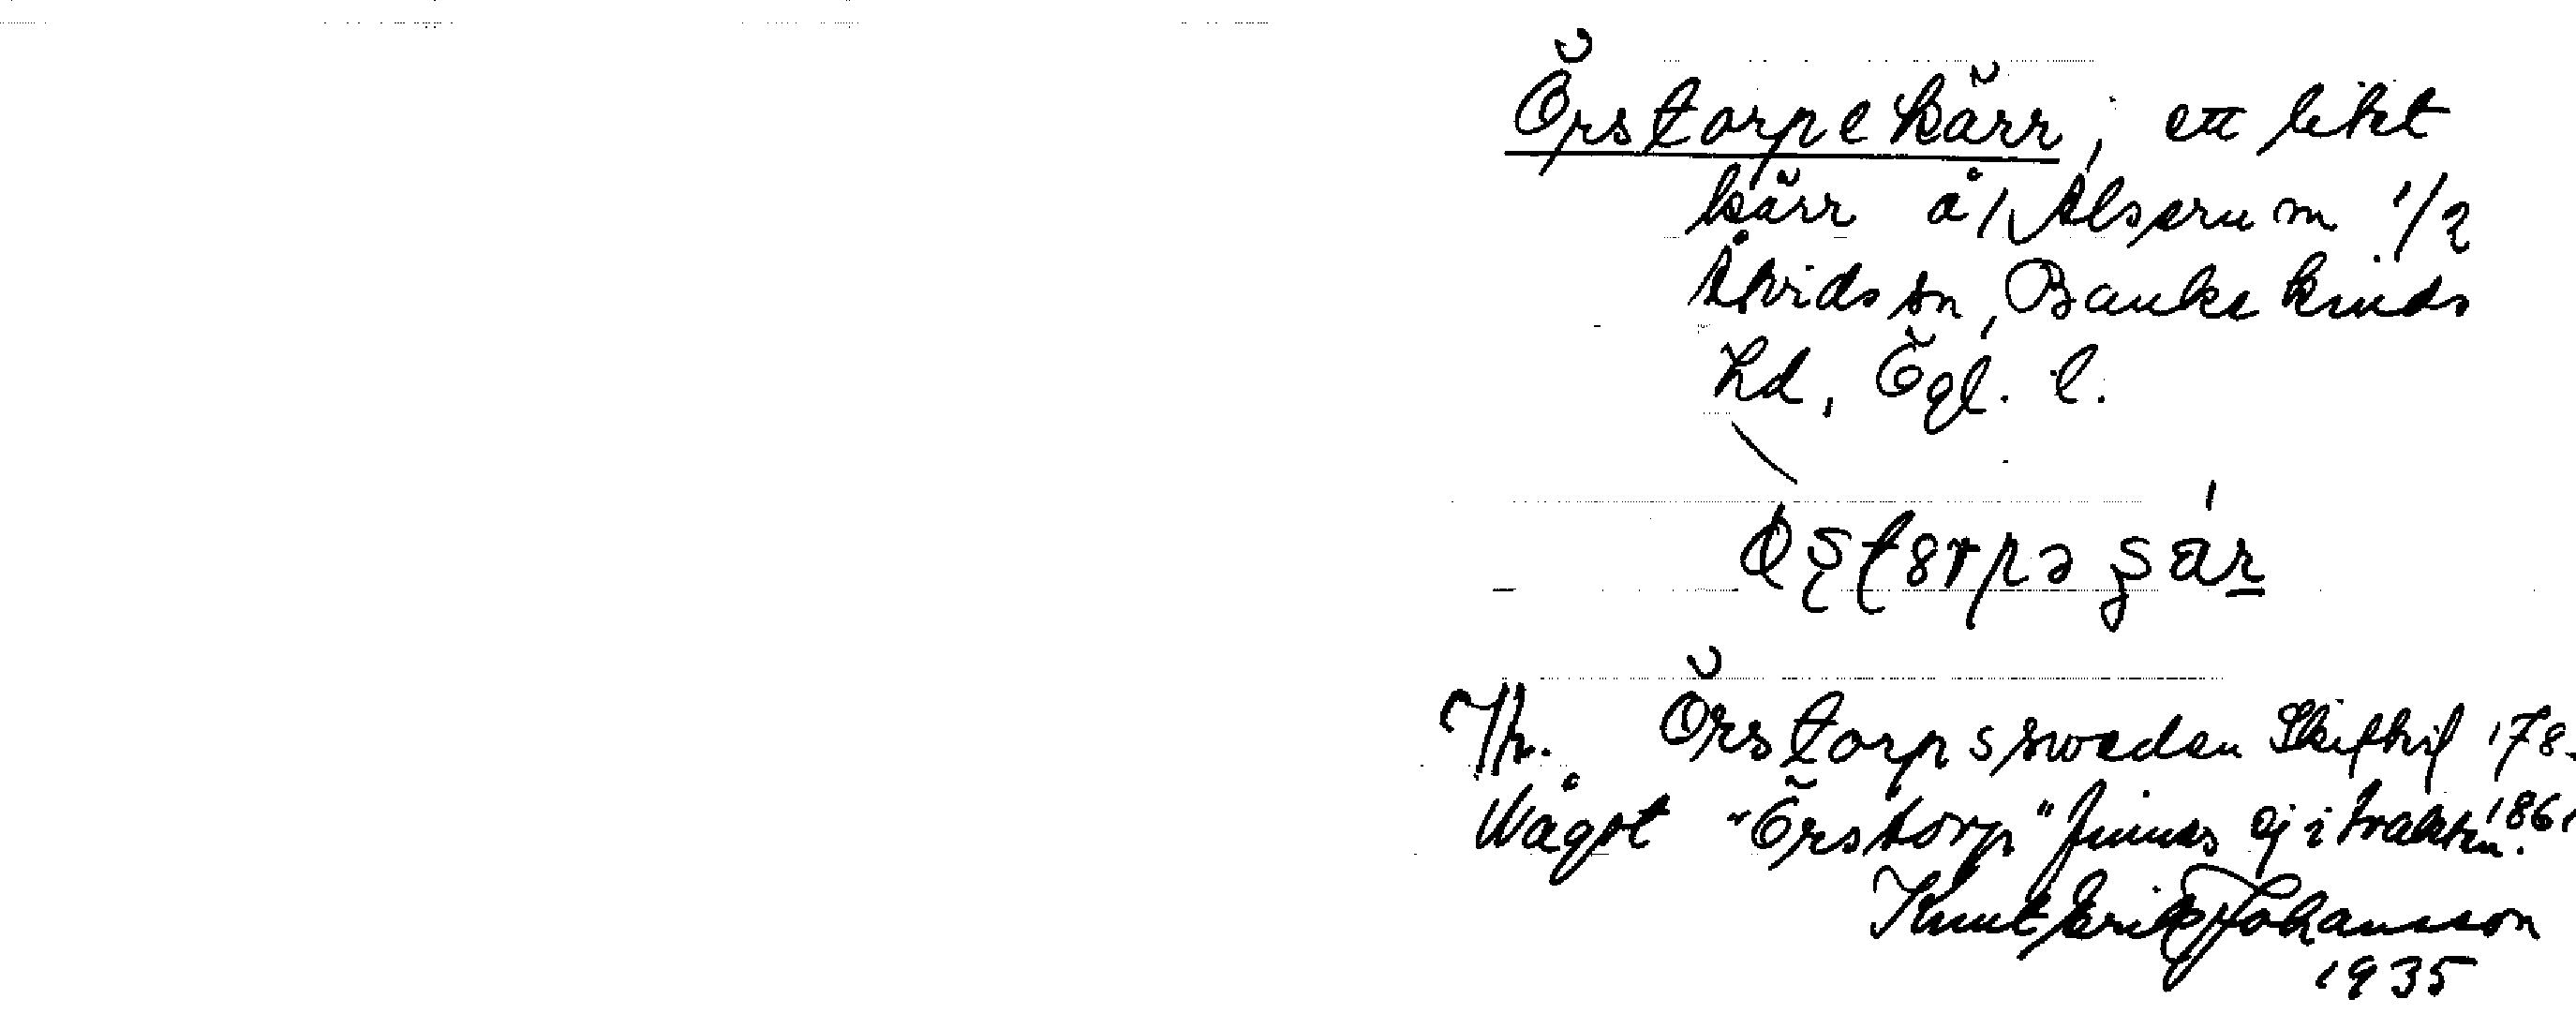 Örstorpekärr, ett litet
kärr å Alserum 1/2
Åtvids sn, Bankekinds
hd, Ögl. l.
Jfr. Örstorpssweden 178
Något "Örstorp" finnes ej i trakten. 1861
Knut Erik Johansson
1935